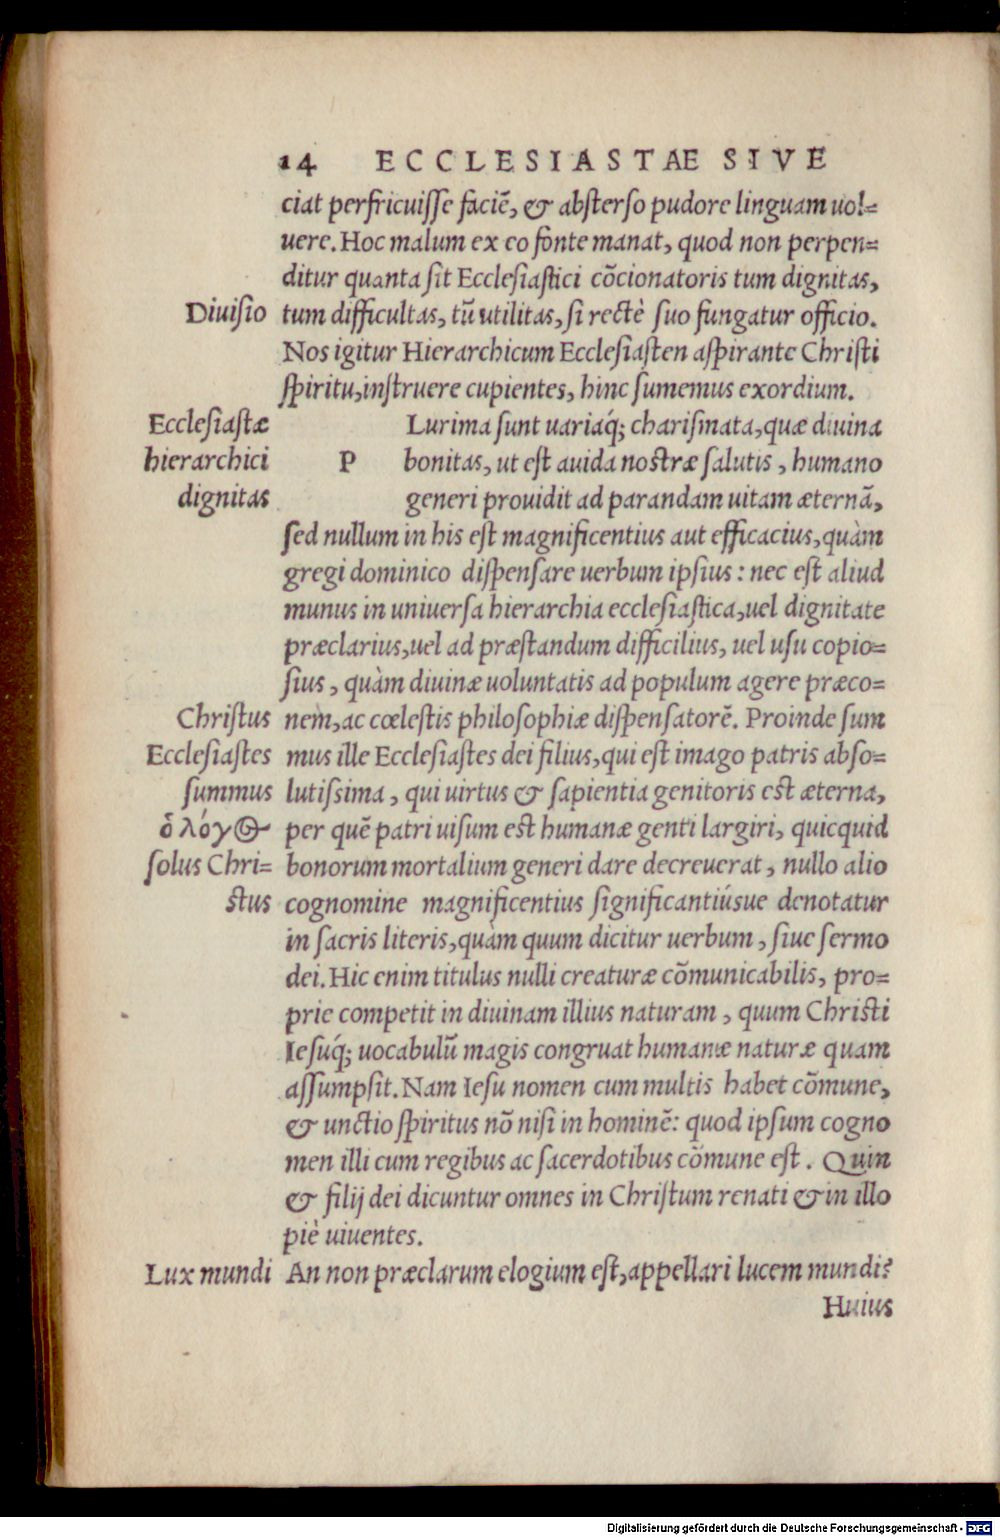 14 ECCLESIASTAE SIVE
ciat perfricuisse faciẽ, & absterso pudore linguam uol=
uere. Hoc malum ex eo fonte manat, quod non perpen=
ditur quanta sit Ecclesiastici cõcionatoris tum dignitas,
Diuisio
tum difficultas, tũ utilitas, si rectè suo fungatur officio.
Nos igitur Hierarchicum Ecclesiasten aspirante Christi
spiritu, instruere cupientes, hinc sumemus exordium.
Ecclesiastæ
hierarchici
dignitas
P
Lurima sunt uariaq́; charismata, quæ diuina
bonitas, ut est auida nostræ salutis, humano
generi prouidit ad parandam uitam æternã,
sed nullum in his est magnificentius aut efficacius, quàm
gregi dominico dispensare uerbum ipsius: nec est aliud
munus in uniuersa hierarchia ecclesiastica, uel dignitate
præclarius, uel ad præstandum difficilius, uel usu copio=
sius, quàm diuinæ uoluntatis ad populum agere præco=
Christus
Ecclesiastes
summus
nem, ac cœlestis philosophiæ dispensatorẽ. Proinde sum
mus ille Ecclesiastes dei filius, qui est imago patris abso=
lutissima, qui uirtus & sapientia genitoris est æterna,
ὁ λόγος
solus Chri=
stus
per quẽ patri uisum est humanæ genti largiri, quicquid
bonorum mortalium generi dare decreuerat, nullo alio
cognomine magnificentius significantiúsue denotatur
in sacris literis, quàm quum dicitur uerbum, siue sermo
dei. Hic enim titulus nulli creaturæ cõmunicabilis, pro=
prie competit in diuinam illius naturam, quum Christi
Iesuq́; uocabulũ magis congruat humanæ naturæ quam
assumpsit. Nam Iesu nomen cum multis habet cõmune,
& unctio spiritus nõ nisi in hominẽ: quod ipsum cogno
men illi cum regibus ac sacerdotibus cõmune est. Quin
& filij dei dicuntur omnes in Christum renati & in illo
piè uiuentes.
Lux mundi
An non præclarum elogium est, appellari lucem mundi?
Huius
Digitalisierung gefördert durch die Deutsche Forschungsgemeinschaft - DFG